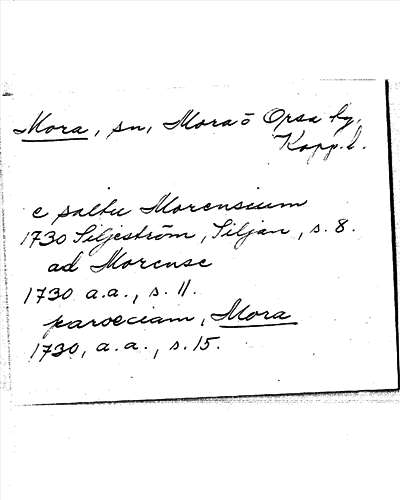 Mora, sn, Mora o Orsa tg,
Kopp. l.
e saltu Morensium
1730 Siljeström, Siljan, s. 8.
ad Morense
1730 a.a., s. 11.
paroeciam, Mora
1730, a.a., s. 15.